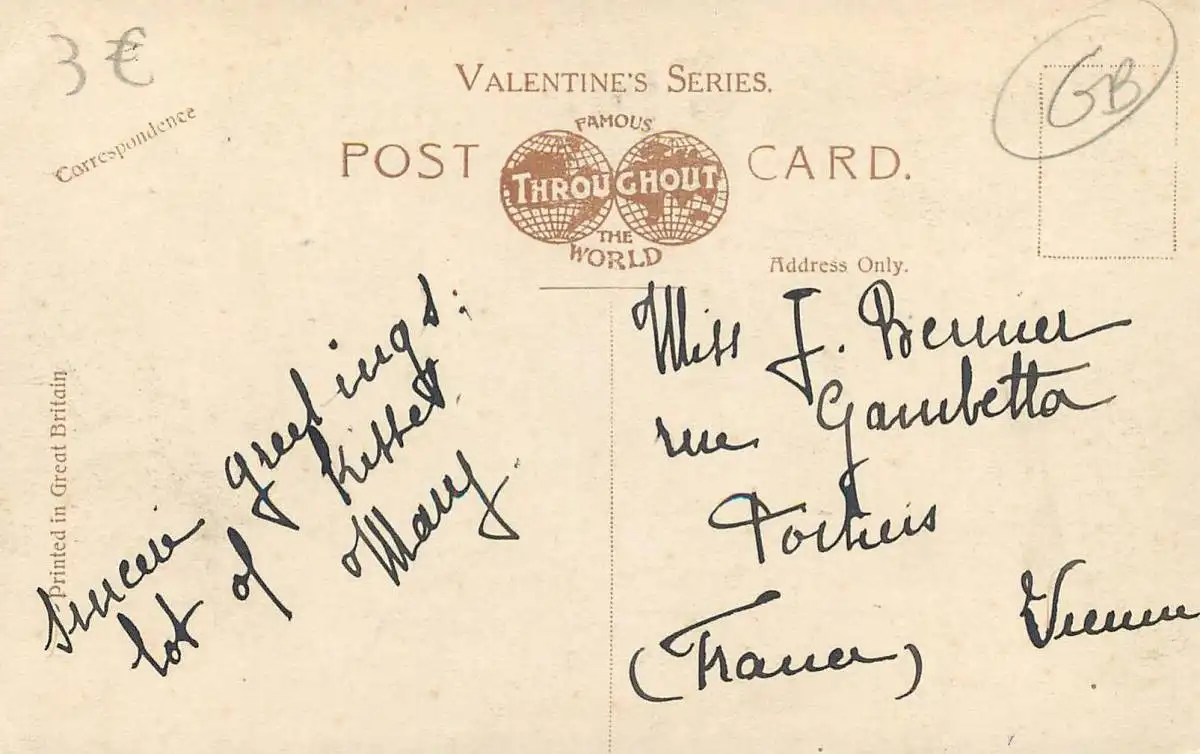 3 €
GB
VALENTINE'S SERIES.
FAMOUS
POST THROUGHOUT CARD.
THE
WORLD
Correspondence
Address Only.
Printed in Great Britain
Sincere greetings.
lot of kisses
Mary
Miss J.
rue Gambetta
Poitiers
Vienne
(France)